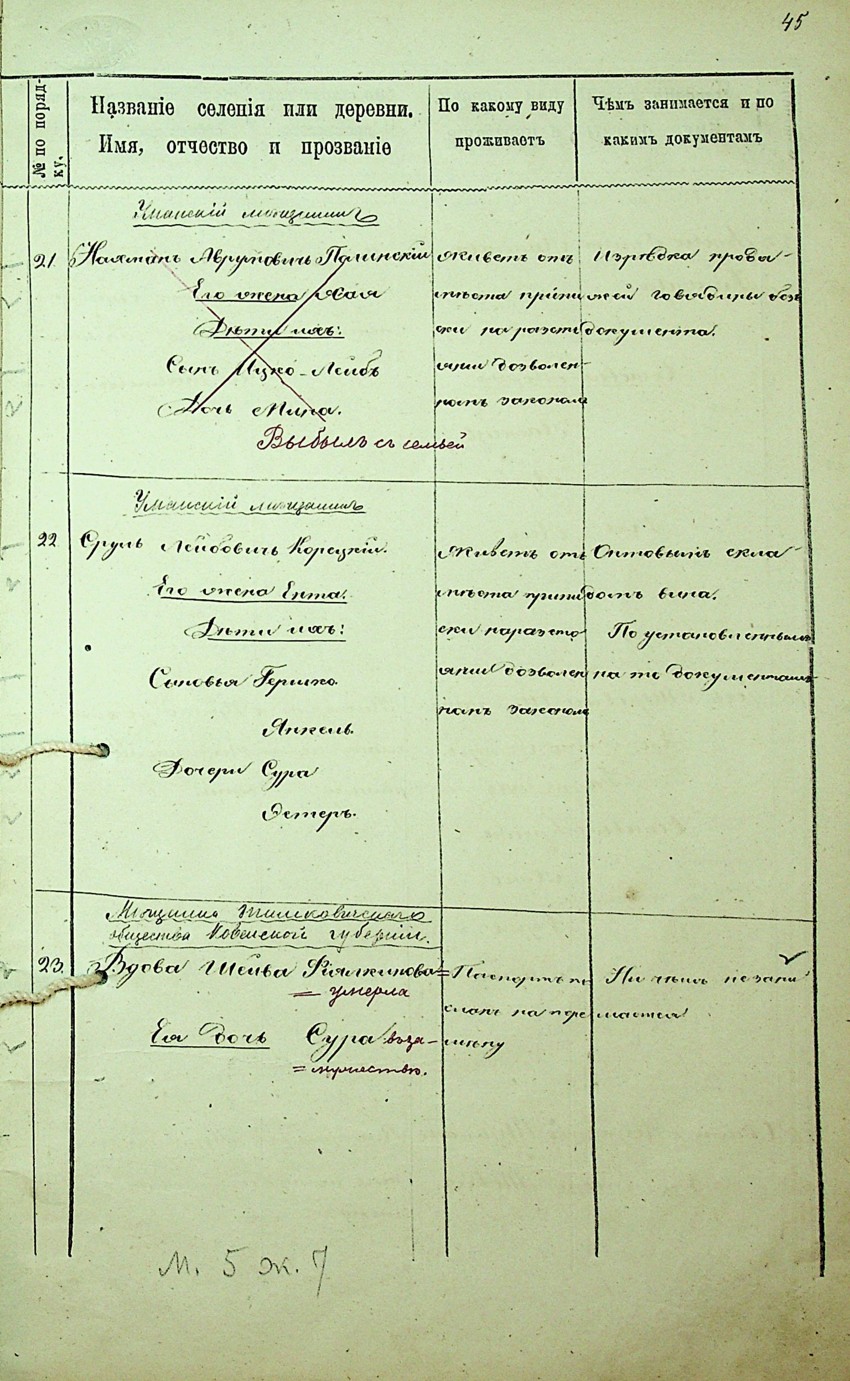 45
№ по поряд-
ку.
Названіе селенія или деревни.
Имя, отчество и прозваніе
По какому виду
проживаетъ
Чѣмъ занимается и по
какимъ документамъ
Уманскій мѣщанинъ
21.
Нахманъ Аврумовичъ Полинскій
Его жена Хая
Дѣти ихъ:
Сынъ Ицко-Лейбъ
Дочь Мина.
Выбылъ съ семьей
живетъ отъ
мѣста припи
ски на разсто
яніи дозволен-
номъ закономъ
Изрѣдка прода-
жей говядины безъ
документа.
Уманскій мѣщанинъ
22
Сруль Лейбовичъ Корецкій.
Его жена Ента.
Дѣти ихъ:
Сыновья Гершко.
Янкель.
Дочери Сура
Эстеръ.
живетъ отъ
мѣста припи
ски на разсто
яніи дозволен
номъ закономъ
Оптовымъ скла-
домъ вина.
По установленнымъ
на то документамъ
Мѣщанка
общества Ковенской губерніи.
23.
Вдова Шейва =
= умерла
Ея дочь Сура въ за-
= мужествѣ.
Паспортъ по
сланъ на пере
мѣну
Ни чѣмъ не зани
мается
М. 5 ж. 7